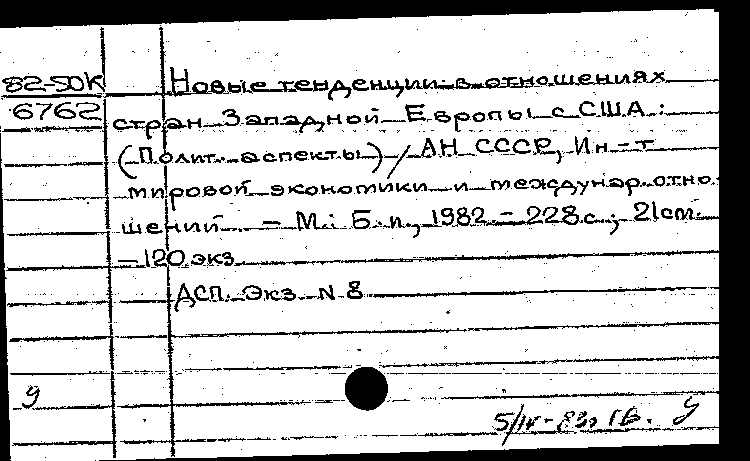 82-50К Новые тенденции в отношениях
6762 стран Западной Европы с США:
(Полит. аспекты) / АН СССР, Ин-т
мировой экономики и междунар. отно
шений - М.: Б.и., 1982 - 228с.; 21см.
- 120 экз
ДСП. Экз. N 8
У
5/IV-83г ГБ. У